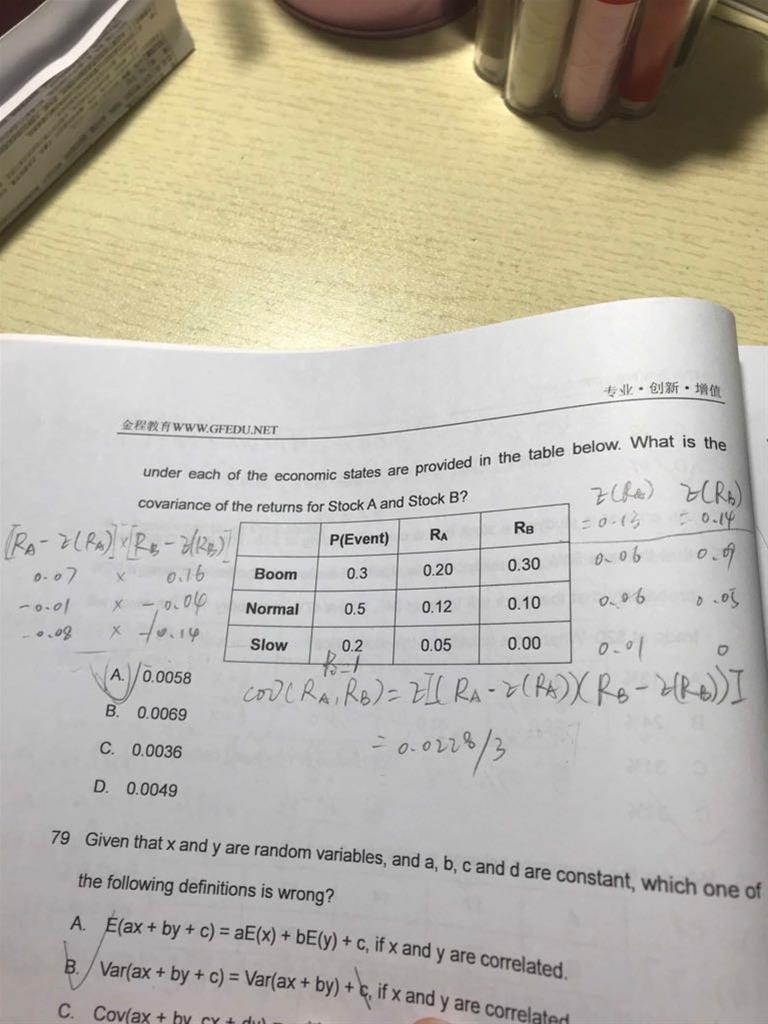 专业·创新·增值
金程教育WWW.GFEDU.NET
under each of the economic states are provided in the table below. What is the
covariance of the returns for Stock A and Stock B?
Σ(RA) Σ(RB)
= 0.13 = 0.14
[RA - Σ(RA)] × [RB - Σ(RB)]
P(Event) RA RB
0.07 × 0.16 Boom 0.3 0.20 0.30 0.06 0.09
-0.01 × -0.04 Normal 0.5 0.12 0.10 0.06 0.05
-0.08 × -0.14 Slow 0.2 0.05 0.00 0.01 0
A. 0.0058
cov(RA, RB) = Σ[(RA - Σ(RA))(RB - Σ(RB))]
B. 0.0069
= 0.0228/3
C. 0.0036
D. 0.0049
79 Given that x and y are random variables, and a, b, c and d are constant, which one of
the following definitions is wrong?
A. E(ax + by + c) = aE(x) + bE(y) + c, if x and y are correlated.
B. Var(ax + by + c) = Var(ax + by) + c, if x and y are correlated
C. Cov(ax + by, cx + dy) =